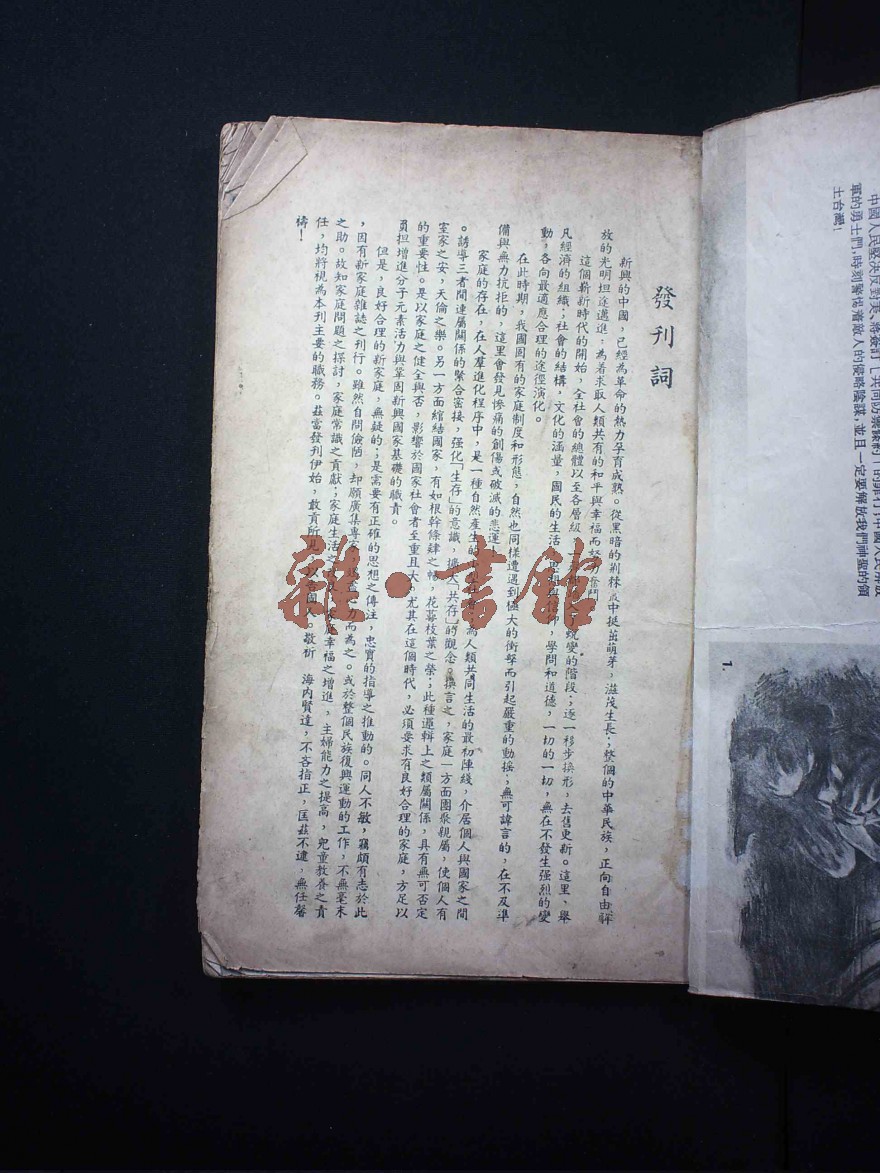 發刊詞
新興的中國，已經為革命的熱力孕育成熟。從黑暗的荆棘叢中挺茁萌芽，滋茂生長；整個的中華民族，正向自由解
放的光明坦途邁進：為着求取人類共有的和平與幸福而努力奮鬥
這個嶄新時代的開始，全社會的總體以至各層級，蛻變的階段；逐一移步換形，去舊更新。這里，舉
凡經濟的組織；社會的結構，文化的涵量，國民的生活，思想與信仰，學問和道德，一切的一切，無在不發生强烈的變
動，各向最適應合理的途徑演化。
在此時期，我國固有的家庭制度和形態，自然也同樣遭遇到極大的衝擊而引起嚴重的動摇；無可諱言的，在不及準
備與無力抗拒的，這里會發見慘痛的創傷或破滅的悲運
家庭的存在，在人羣進化程序中，是一種自然產生的為人類共同生活的最初陣綫，介居個人與國家之間
。誘導三者間連屬關係的緊合密接，强化「生存」的意識，擴大「共存」的觀念。换言之，家庭一方面團聚親屬，使個人有
室家之安，天倫之樂。另一方面綰結國家，有如根幹條肄之暢，花萼枝葉之榮；此種邏輯上之類屬關係，具有無可否定
的重要性。是以家庭之健全與否，影響於國家社會者至重且大。尤其在這個時代，必須要求有良好合理的家庭，方足以
員担增進分子元素活力與鞏固新興國家基礎的職責。
但是，良好合理的新家庭，無疑的；是需要有正確的思想之傳注，忠實的指導之推動的。同人不敏，竊頗有志於此
，因有新家庭雜誌之刊行。雖然自問儉陋，却願廣集專家，力而為之。或於整個民族復興運動的工作，不無毫末
之助。故知家庭問題之探討，家庭常識之貢獻；家庭生活之幸福之增進，主婦能力之提高，兒童教養之責
任，均將視為本刊主要的職務。茲當發刊伊始，敢貢所見，以告國人。敬祈 海内賢達，不吝指正，匡茲不逮，無任馨
禱！
雜·書館
中國人民堅決反對美、蔣簽訂「共同防禦條約」的罪行！中國人民解放
軍的勇士們，時刻警惕着敵人的侵略陰謀，並且一定要解放我們神聖的領
土台灣！
1.